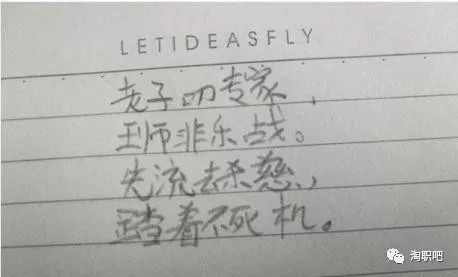 LETIDEASFLY
老子叨专家,
王师非乐战。
先流去杀慈,
着不死机。
淘职吧